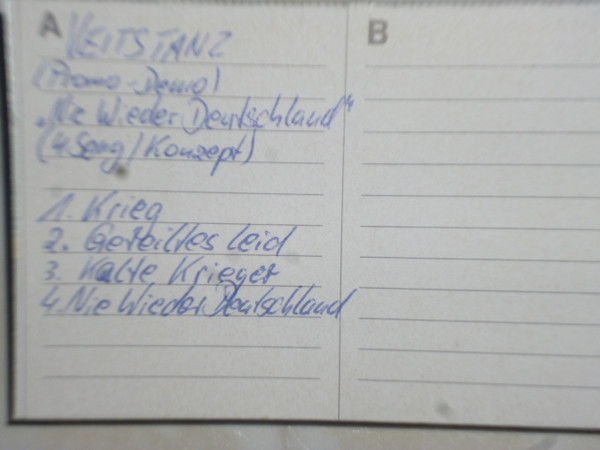 A VEITSTANZ
(Promo-Demo)
„Nie Wieder Deutschland"
(4. Song/Konzept)
1. Krieg
2. Geteiltes Leid
3. Kalte Krieger
4. Nie Wieder Deutschland
B